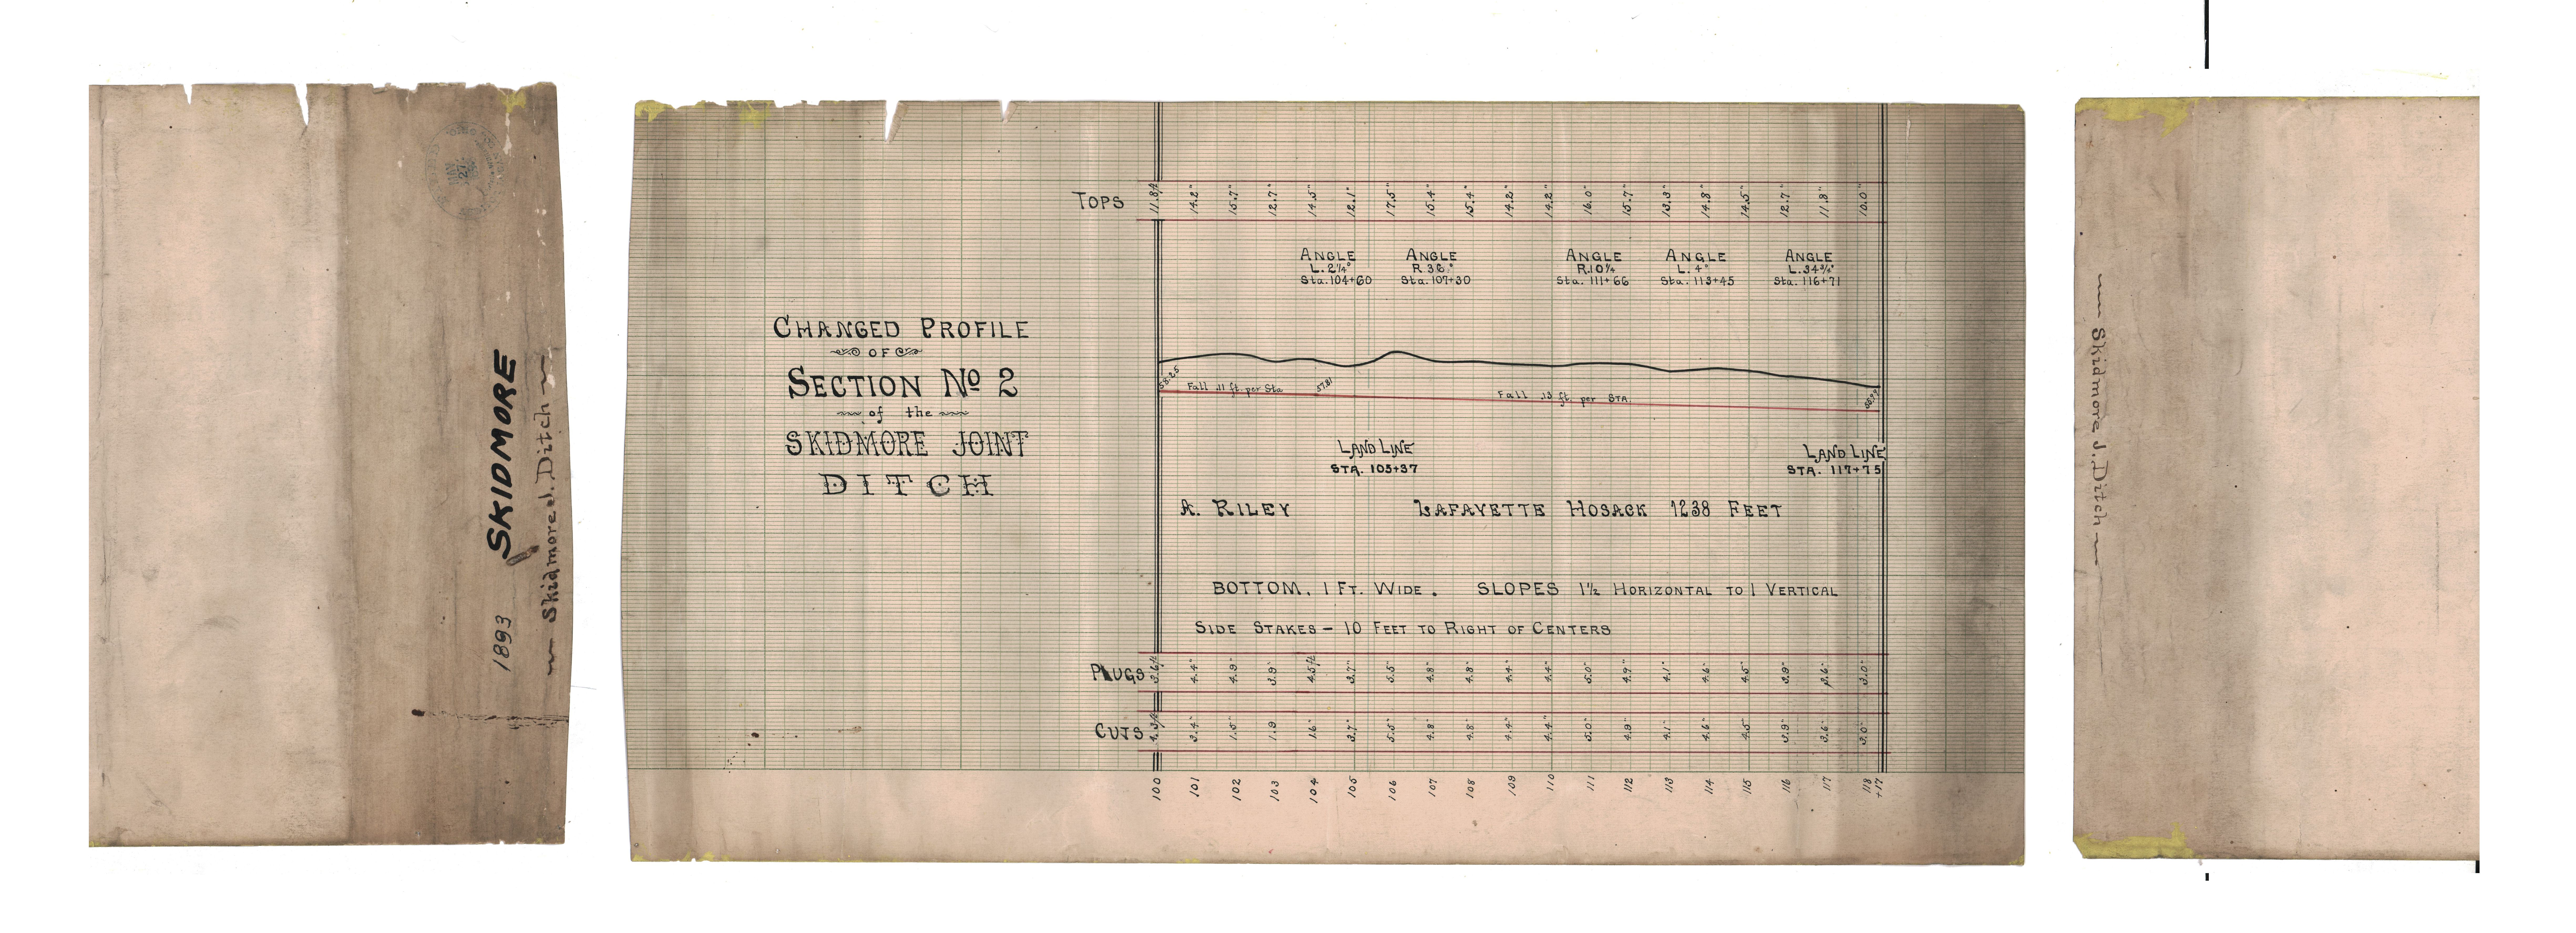 SKIDMORE
1893
Skidmore J. Ditch
CHANGED PROFILE
OF
SECTION No 2
of the
SKIDMORE JOINT
DITCH
TOPS 11.8ft 14.2" 15.7" 12.7" 14.5" 12.1" 17.5" 15.4" 15.4" 14.2" 14.2" 16.0" 15.7" 13.3" 14.8" 14.5" 12.7" 11.8" 10.0"
ANGLE
L. 2¼°
Sta. 104+60
ANGLE
R 38°
Sta. 107+30
ANGLE
R. 10¼
Sta. 111+66
ANGLE
L. 4°
Sta. 113+45
ANGLE
L. 34¾°
Sta. 116+71
58.25
Fall .11 ft. per Sta
57.81
Fall .13 ft. per STA.
LAND LINE
STA. 105+37
LAND LINE
STA. 117+75
A. RILEY
LAFAYETTE HOSACK 1238 FEET
BOTTOM. 1 FT. WIDE. SLOPES 1½ HORIZONTAL TO 1 VERTICAL
SIDE STAKES – 10 FEET TO RIGHT OF CENTERS
PLUGS 3.6ft 4.4" 4.9" 3.9" 4.5ft 3.7" 5.5" 4.8" 4.8" 4.4" 4.4" 5.0" 4.9" 4.1" 4.6" 4.5" 3.9" 3.6" 3.0"
CUTS 3.4" 1.5" 1.9 1.6" 3.7" 5.5" 4.8" 4.8" 4.4" 4.4" 5.0" 4.9 4.1" 4.6" 4.5" 3.9" 3.6" 3.0"
100 101 102 103 104 105 106 107 108 109 110 111 112 113 114 115 116 117 118
+17
Skidmore J. Ditch